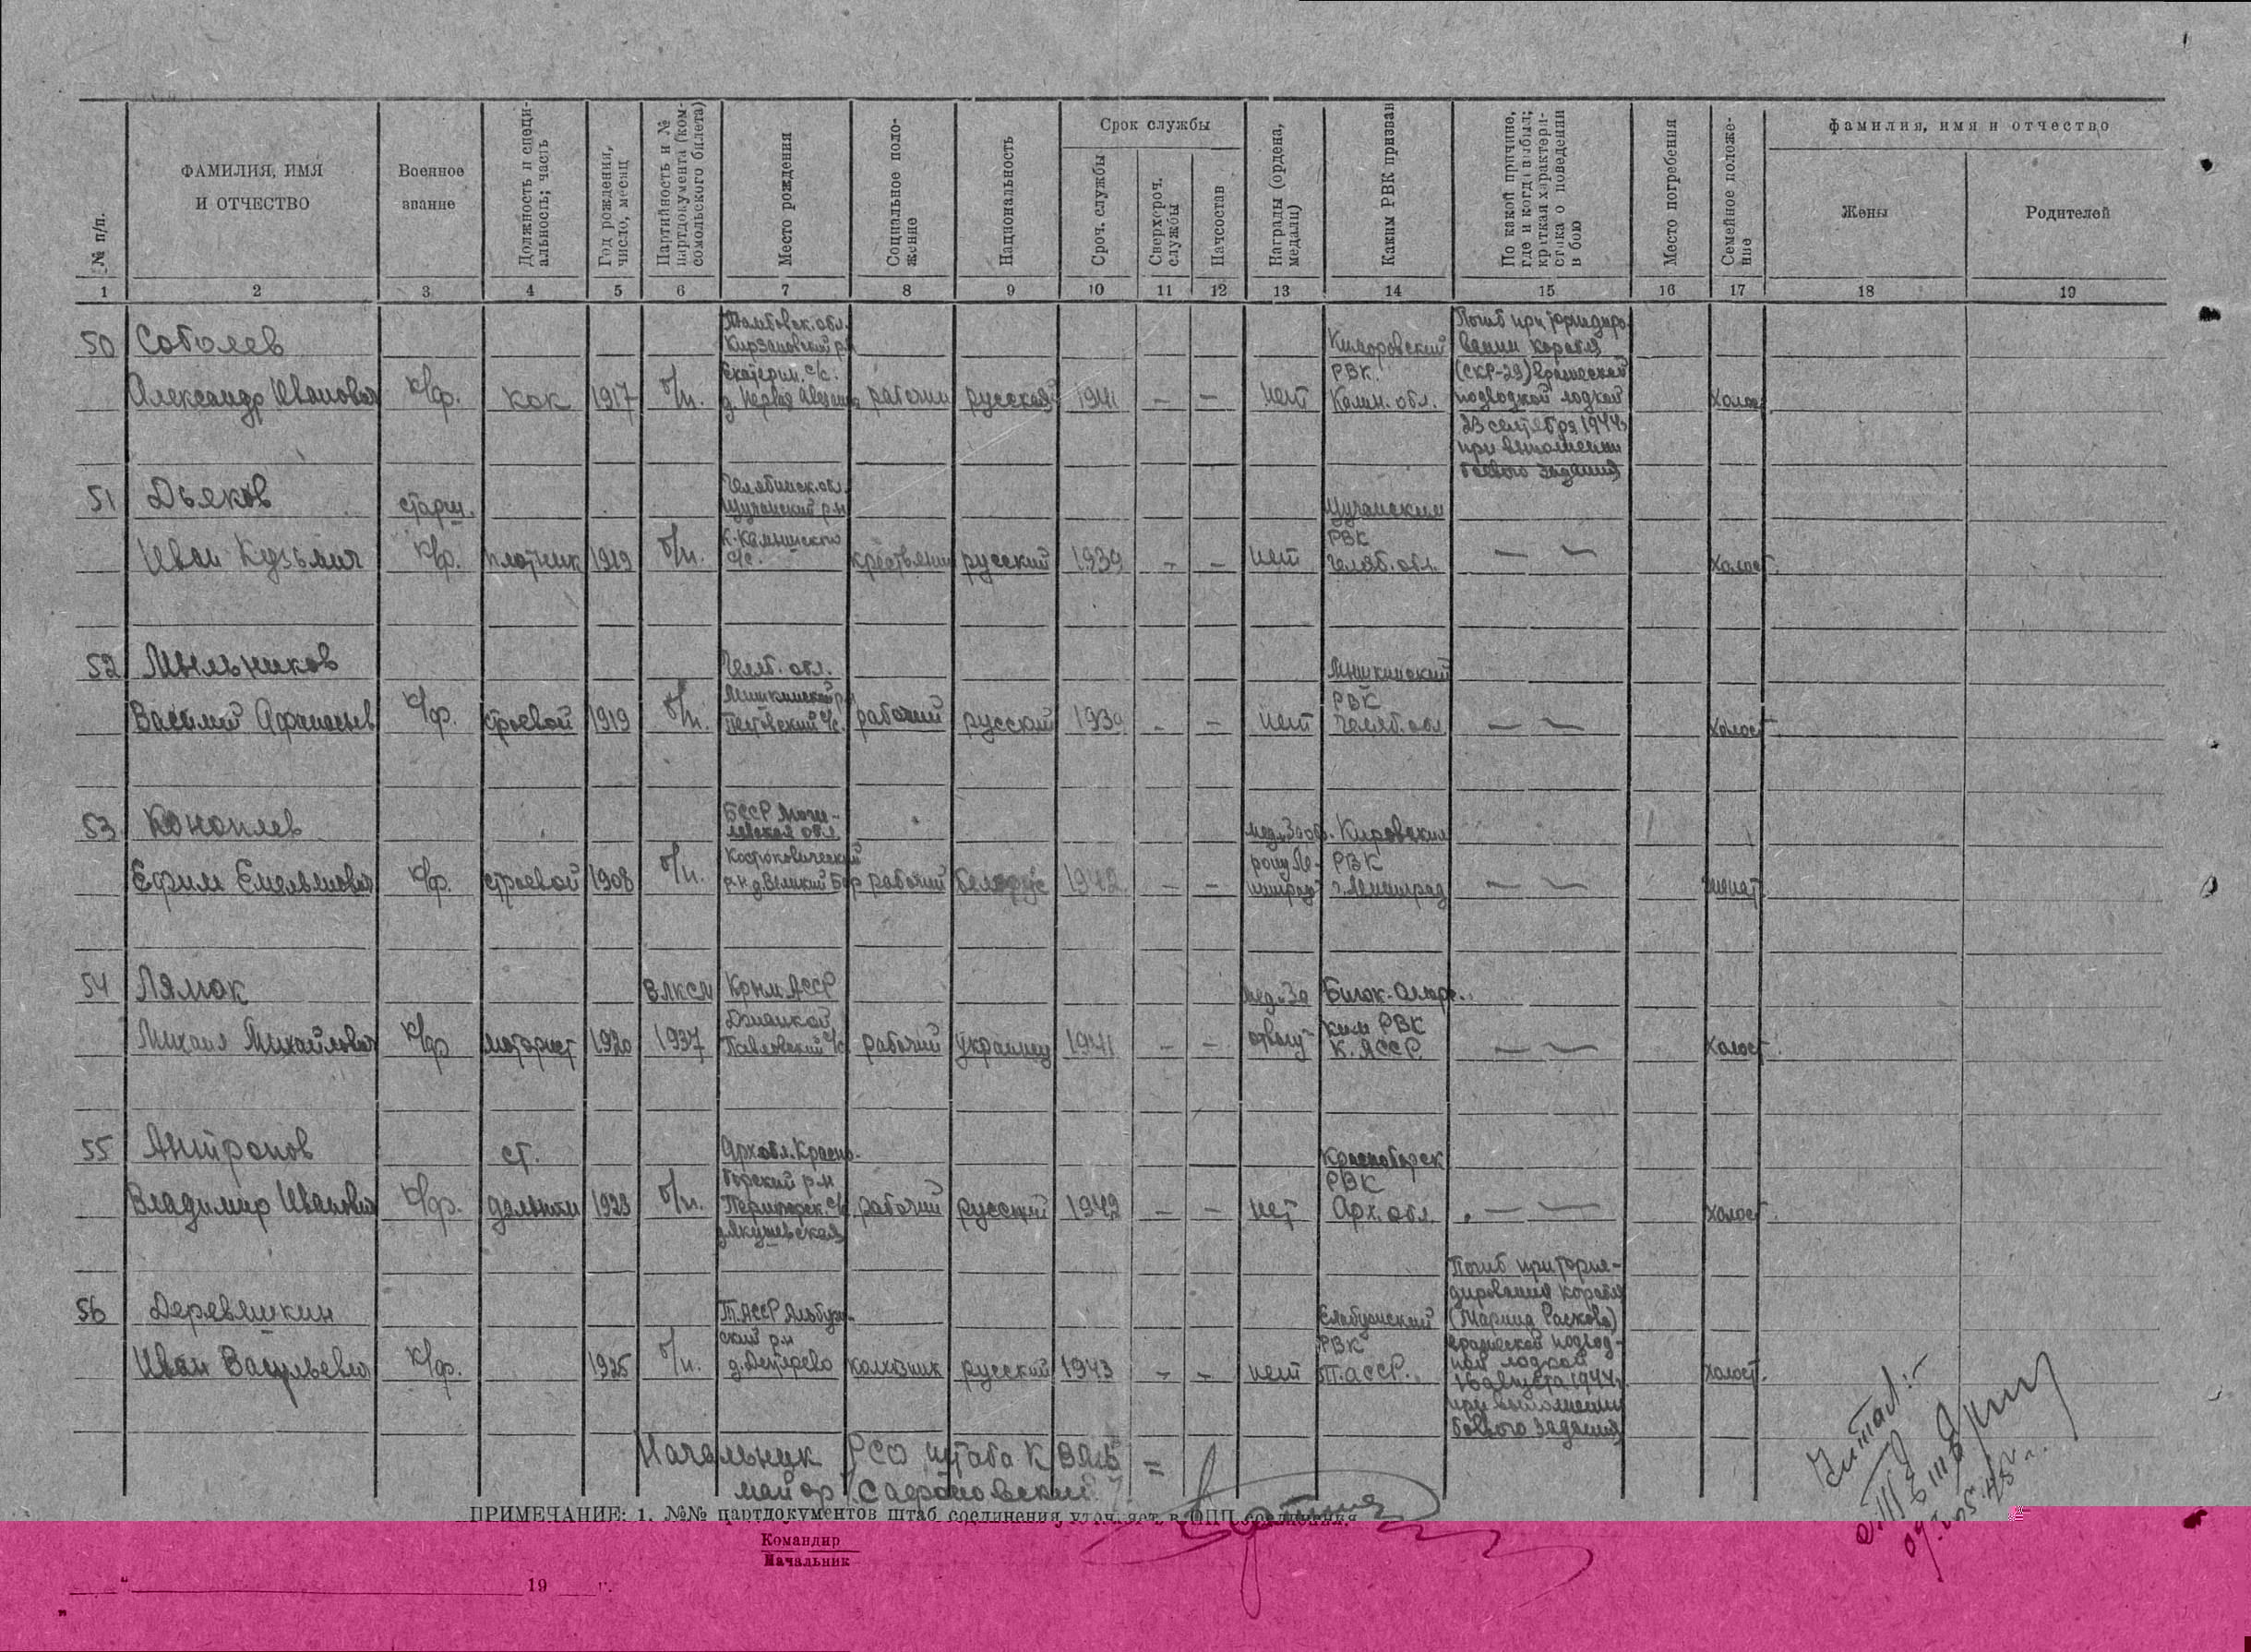 № п/п.
ФАМИЛИЯ, ИМЯ
И ОТЧЕСТВО
Военное
звание
Должность и специ-
альность; часть
Год рождения,
число, месяц
Партийность и №
партдокумента (ком-
сомольского билета)
Место рождения
Социальное поло-
жение
Национальность
Срок службы
Сроч. службы
Сверхсроч.
службы
Начсостав
Награды (ордена,
медали)
Каким РВК призван
По какой причине,
где и когда выбыл;
краткая характери-
стика о поведении
в бою
Место погребения
Семейное положе-
ние
фамилия, имя и отчество
Жены
Родителей
1 2 3 4 5 6 7 8 9 10 11 12 13 14 15 16 17 18 19
50 Соболев
Александр Иванович
к/ф. кок 1917 б/п.
Тамбовск. обл.
Кирзановский р.н
Екатерин. с/с.
рабочий русский 1941 — — нет
Кимровский
РВК.
Калин. обл.
Погиб при торпедиро
вании корабля
(СКР-29) вражеской
подводной лодкой
23 сентября 1944г
при выполнении
боевого задания
холост
51 Дьяков
Иван Кузьмич
старш.
к/ф. плотник 1919 б/п.
Челябинск. обл.
Щучанский р.н
с/с.
крестьянин русский 1939 — — нет
Щучанским
РВК
Челяб. обл.
— —
холост.
52 Мыльников
Василий Афанасьев
к/ф. строевой 1919 б/п.
Челяб. обл.
Мишкинской р.н
Петровский с/с.
рабочий русский 1939 — — нет
Мишкинский
РВК
Челяб. обл
— —
холост
53 Коноплев
Ефим Емельянович
к/ф. строевой 1908 б/п.
БССР Моги-
левская обл.
Костюковический
р.н. д. Великий Бор
рабочий белорус 1942 — —
мед. За обо.
рону Ле-
нинград"
Кировским
РВК
г. Ленинград
— —
женат
54 Лямок
Михаил Михайлович
к/ф моторист 1920
ВЛКСМ
1937
Крым. АССР
Джанкой
Павловский с/с.
рабочий украинец 1941 — —
мед. За
отвагу"
Биюк-Онлар.
ким РВК
К. АССР
— —
холост.
55 Антропов
Владимир Иванович
к/ф.
ст.
дальном 1923 б/п.
Арх обл. Красно-
борский р.н
д. Якушевская
рабочий русский 1942 — — нет
Красноборск
РВК
Арх. обл.
— —
холост.
56 Деревяшкин
Иван Васильевич
к/ф. 1925 б/п.
Т. АССР
ский р.н
колхозник русский 1943 — — нет
Елабужский
РВК
Т. АССР.
Погиб при торпе-
дировании корабля
(Марина Раскова)
вражеской подвод-
ной лодкой
16 августа 1944г.
при выполнении
боевого задания
холост.
Начальник РСО штаба К ВМБ =
майор
ПРИМЕЧАНИЕ: 1. №№ партдокументов штаб соединения уточняет в ОПП соединения.
Командир
Начальник
"	19 г.
Читал: